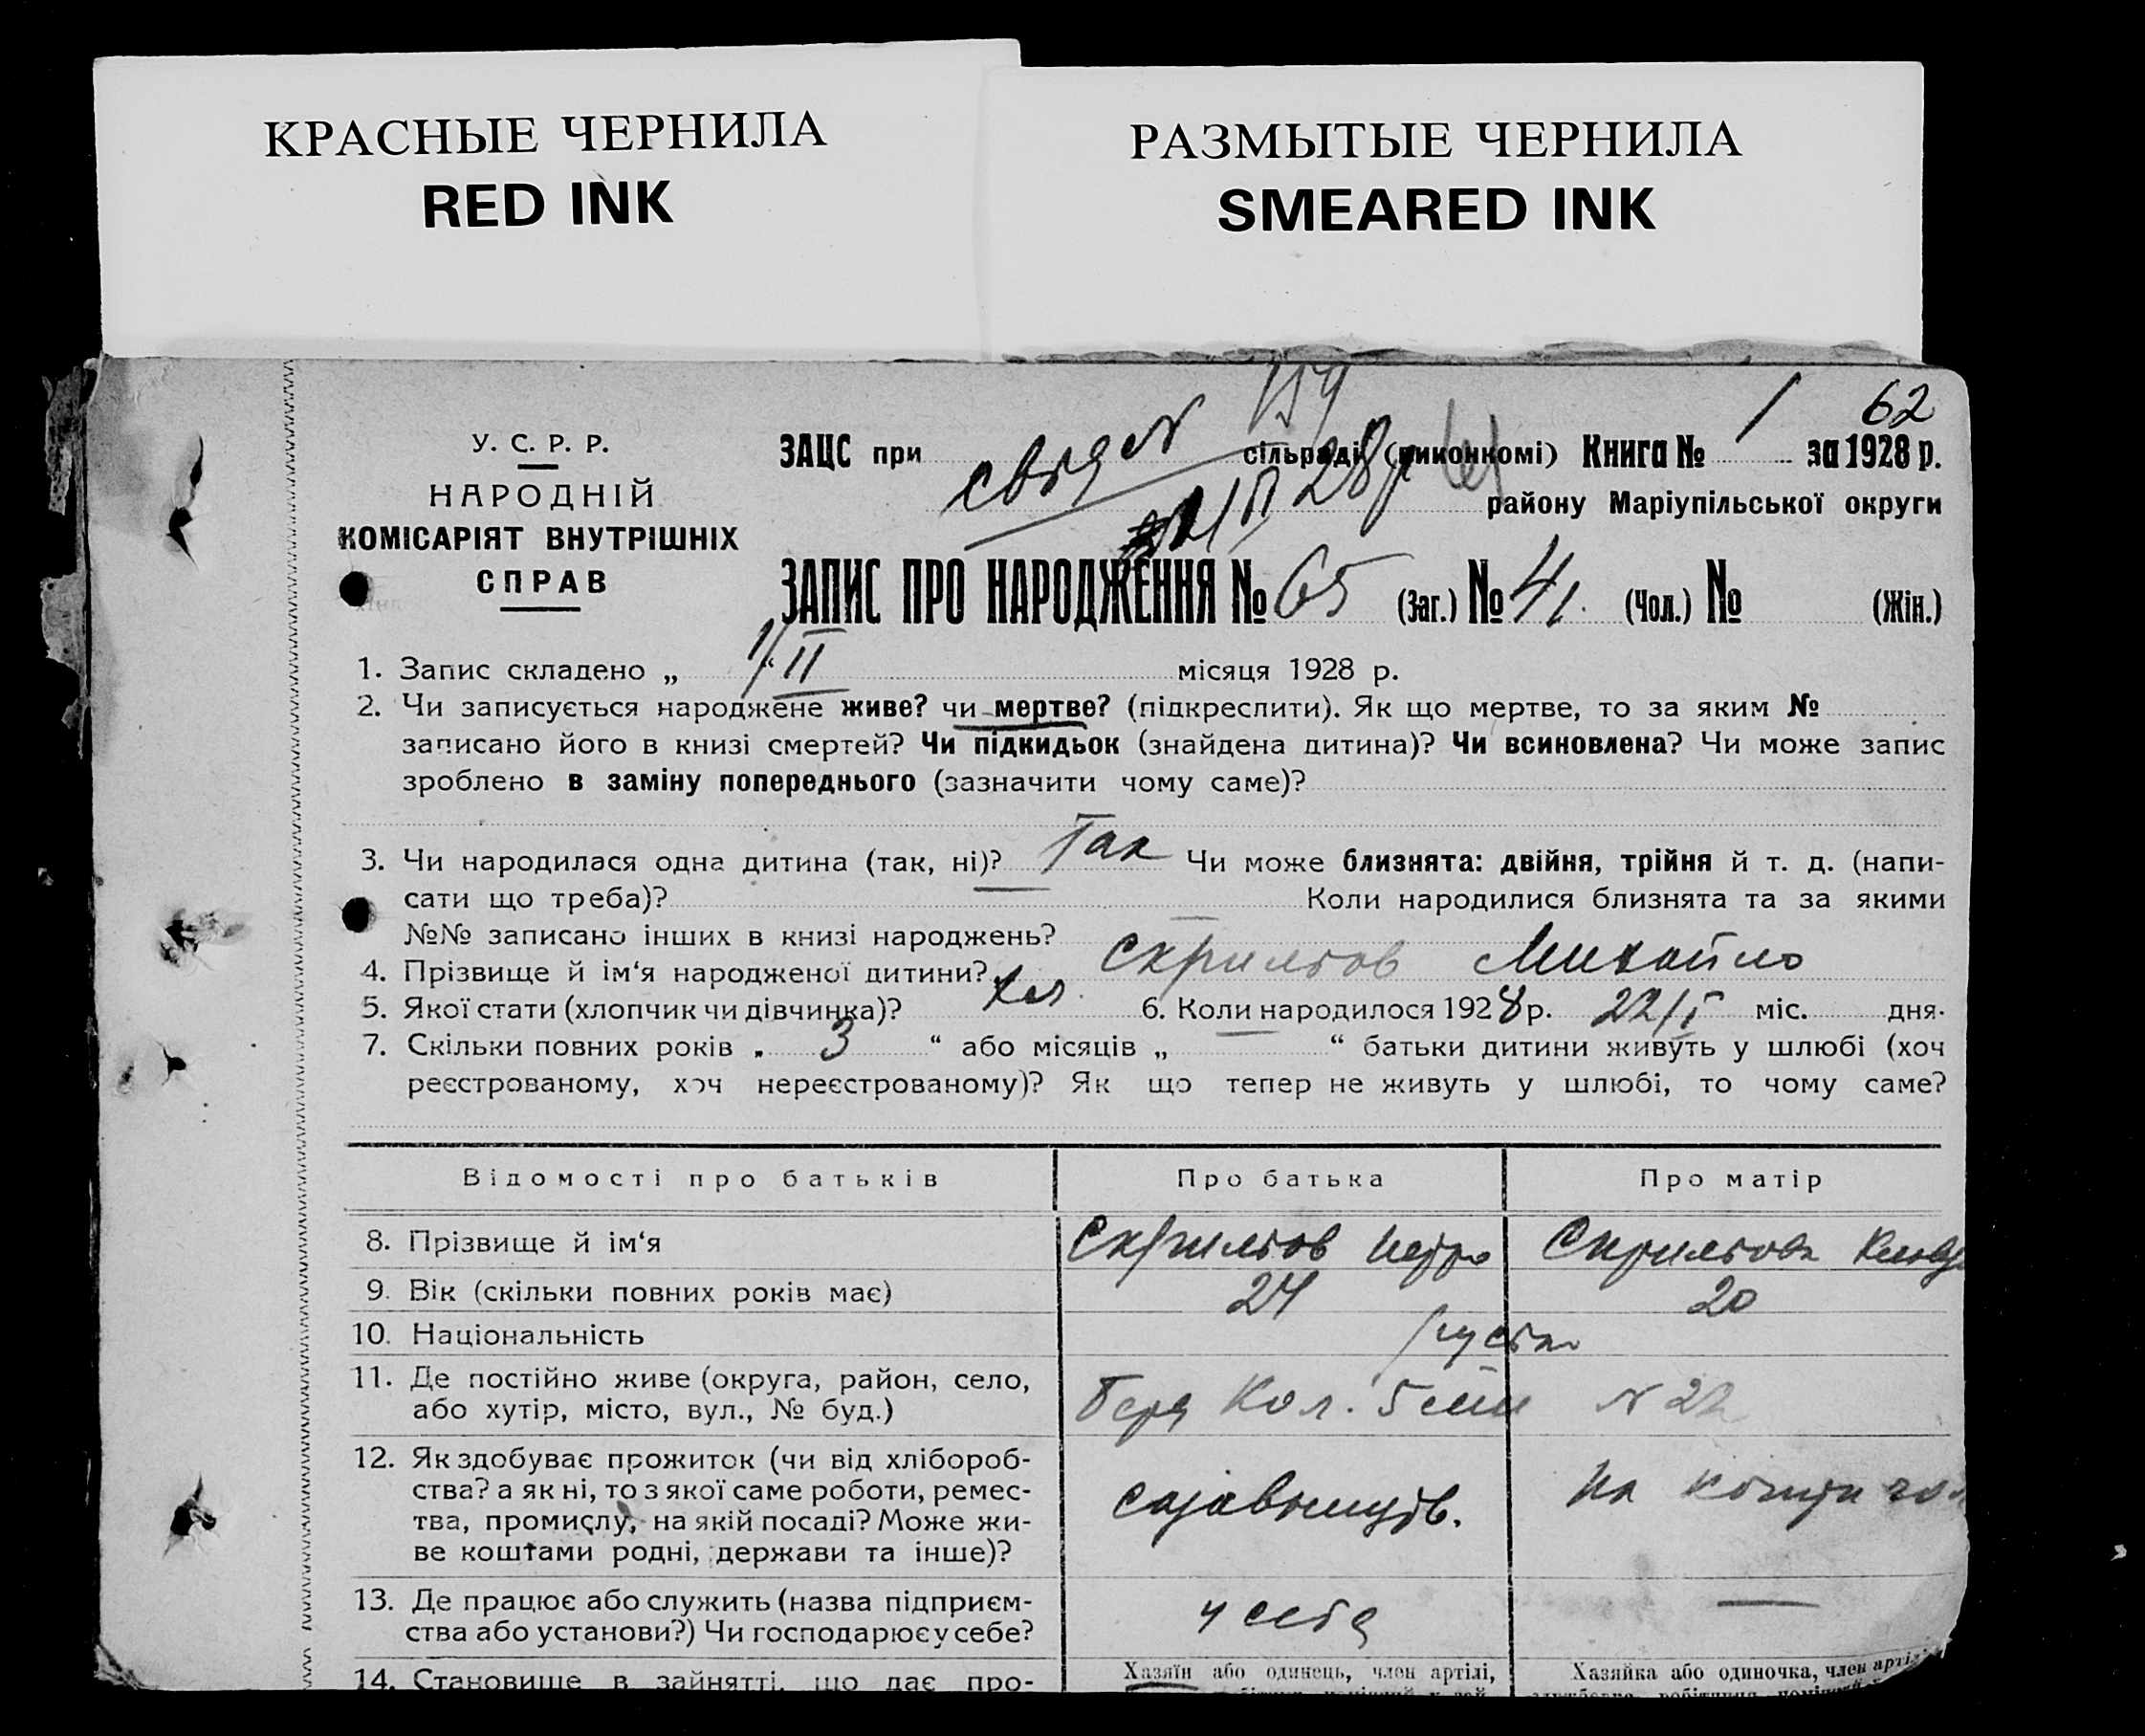 КРАСНЫЕ ЧЕРНИЛА
RED INK
РАЗМЫТЫЕ ЧЕРНИЛА
SMEARED INK
62
У. С. Р. Р.
НАРОДНІЙ
КОМІСАРІЯТ ВНУТРІШНІХ
СПРАВ
ЗАЦС при сільраді (виконкомі) Книга № 1 за 1928 р.
28р
району Маріупільської округи
ЗАПИС ПРО НАРОДЖЕННЯ № 65 (Заг.) № 41. (Чол.) № (Жін.)
1. Запис складено „ 1/II “ місяця 1928 р.
2. Чи записується народжене живе? чи мертве? (підкреслити). Як що мертве, то за яким №
записано його в книзі смертей? Чи підкидьок (знайдена дитина)? Чи всиновлена? Чи може запис
зроблено в заміну попереднього (зазначити чому саме)?
3. Чи народилася одна дитина (так, ні)? Так Чи може близнята: двійня, трійня й т. д. (напи-
сати що треба)? Коли народилися близнята та за якими
№№ записано інших в книзі народжень?
4. Прізвище й ім‘я народженої дитини? Скрильов Михайло
5. Якої стати (хлопчик чи дівчинка)? хл. 6. Коли народилося 1928 р. 22/I міс. дня.
7. Скільки повних років „ 3 “ або місяців „ “ батьки дитини живуть у шлюбі (хоч
реєстрованому, хоч нереєстрованому)? Як що тепер не живуть у шлюбі, то чому саме?
Відомості про батьків Про батька Про матір
8. Прізвище й ім‘я Скрильов Петро Скрильова
9. Вік (скільки повних років має) 24 20
10. Національність руські
11. Де постійно живе (округа, район, село,
або хутір, місто, вул., № буд.) Кол. 5 N 22
12. Як здобуває прожиток (чи від хлібороб-
ства? а як ні, то з якої саме роботи, ремес-
тва, промислу, на якій посаді? Може жи-
ве коштами родні, держави та інше)?
13. Де працює або служить (назва підприєм-
ства або установи?) Чи господарює у себе? у себе —
14. Становище в зайнятті, що дає про-
Хазяїн або одинець, член артілі,
Хазяйка або одиночка, член артілі